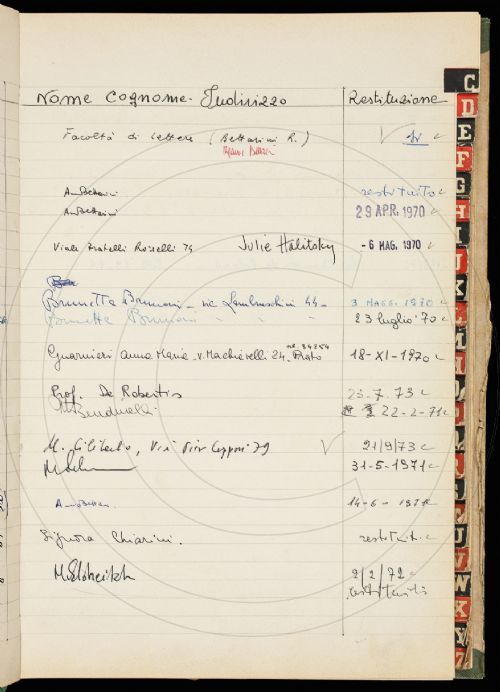 Nome Cognome - Indirizzo Restituzione
Facoltà di Lettere (Bettarini R.)
A. Bettarini restituito
A. Bettarini 29 APR. 1970
Viale Fratelli Rosselli 74 Julie Halitsky - 6 MAG. 1970
Brunetta Brunoni - via Lambruschini 44 - 3 MAGG. 1970
Brunetta Brunoni " " " 23 luglio 70
nr. 34254
Guarnieri Anna Maria - v. Machiavelli 24. Prato 18-XI-1970
Prof. De Robertis 23-7.73
M. Bendinelli 22-2-71
M. Ciliberto, Via Pier Capponi 79 21/9/73
31-5-1971
A. Bettarini 14-6-1971
Signora Chiarini. restituito
M. Elsheikh 2/2/72
restituito
C
D
E
F
G
H
I
J
K
L
M
H
O
U
V
W
X
Y
Z